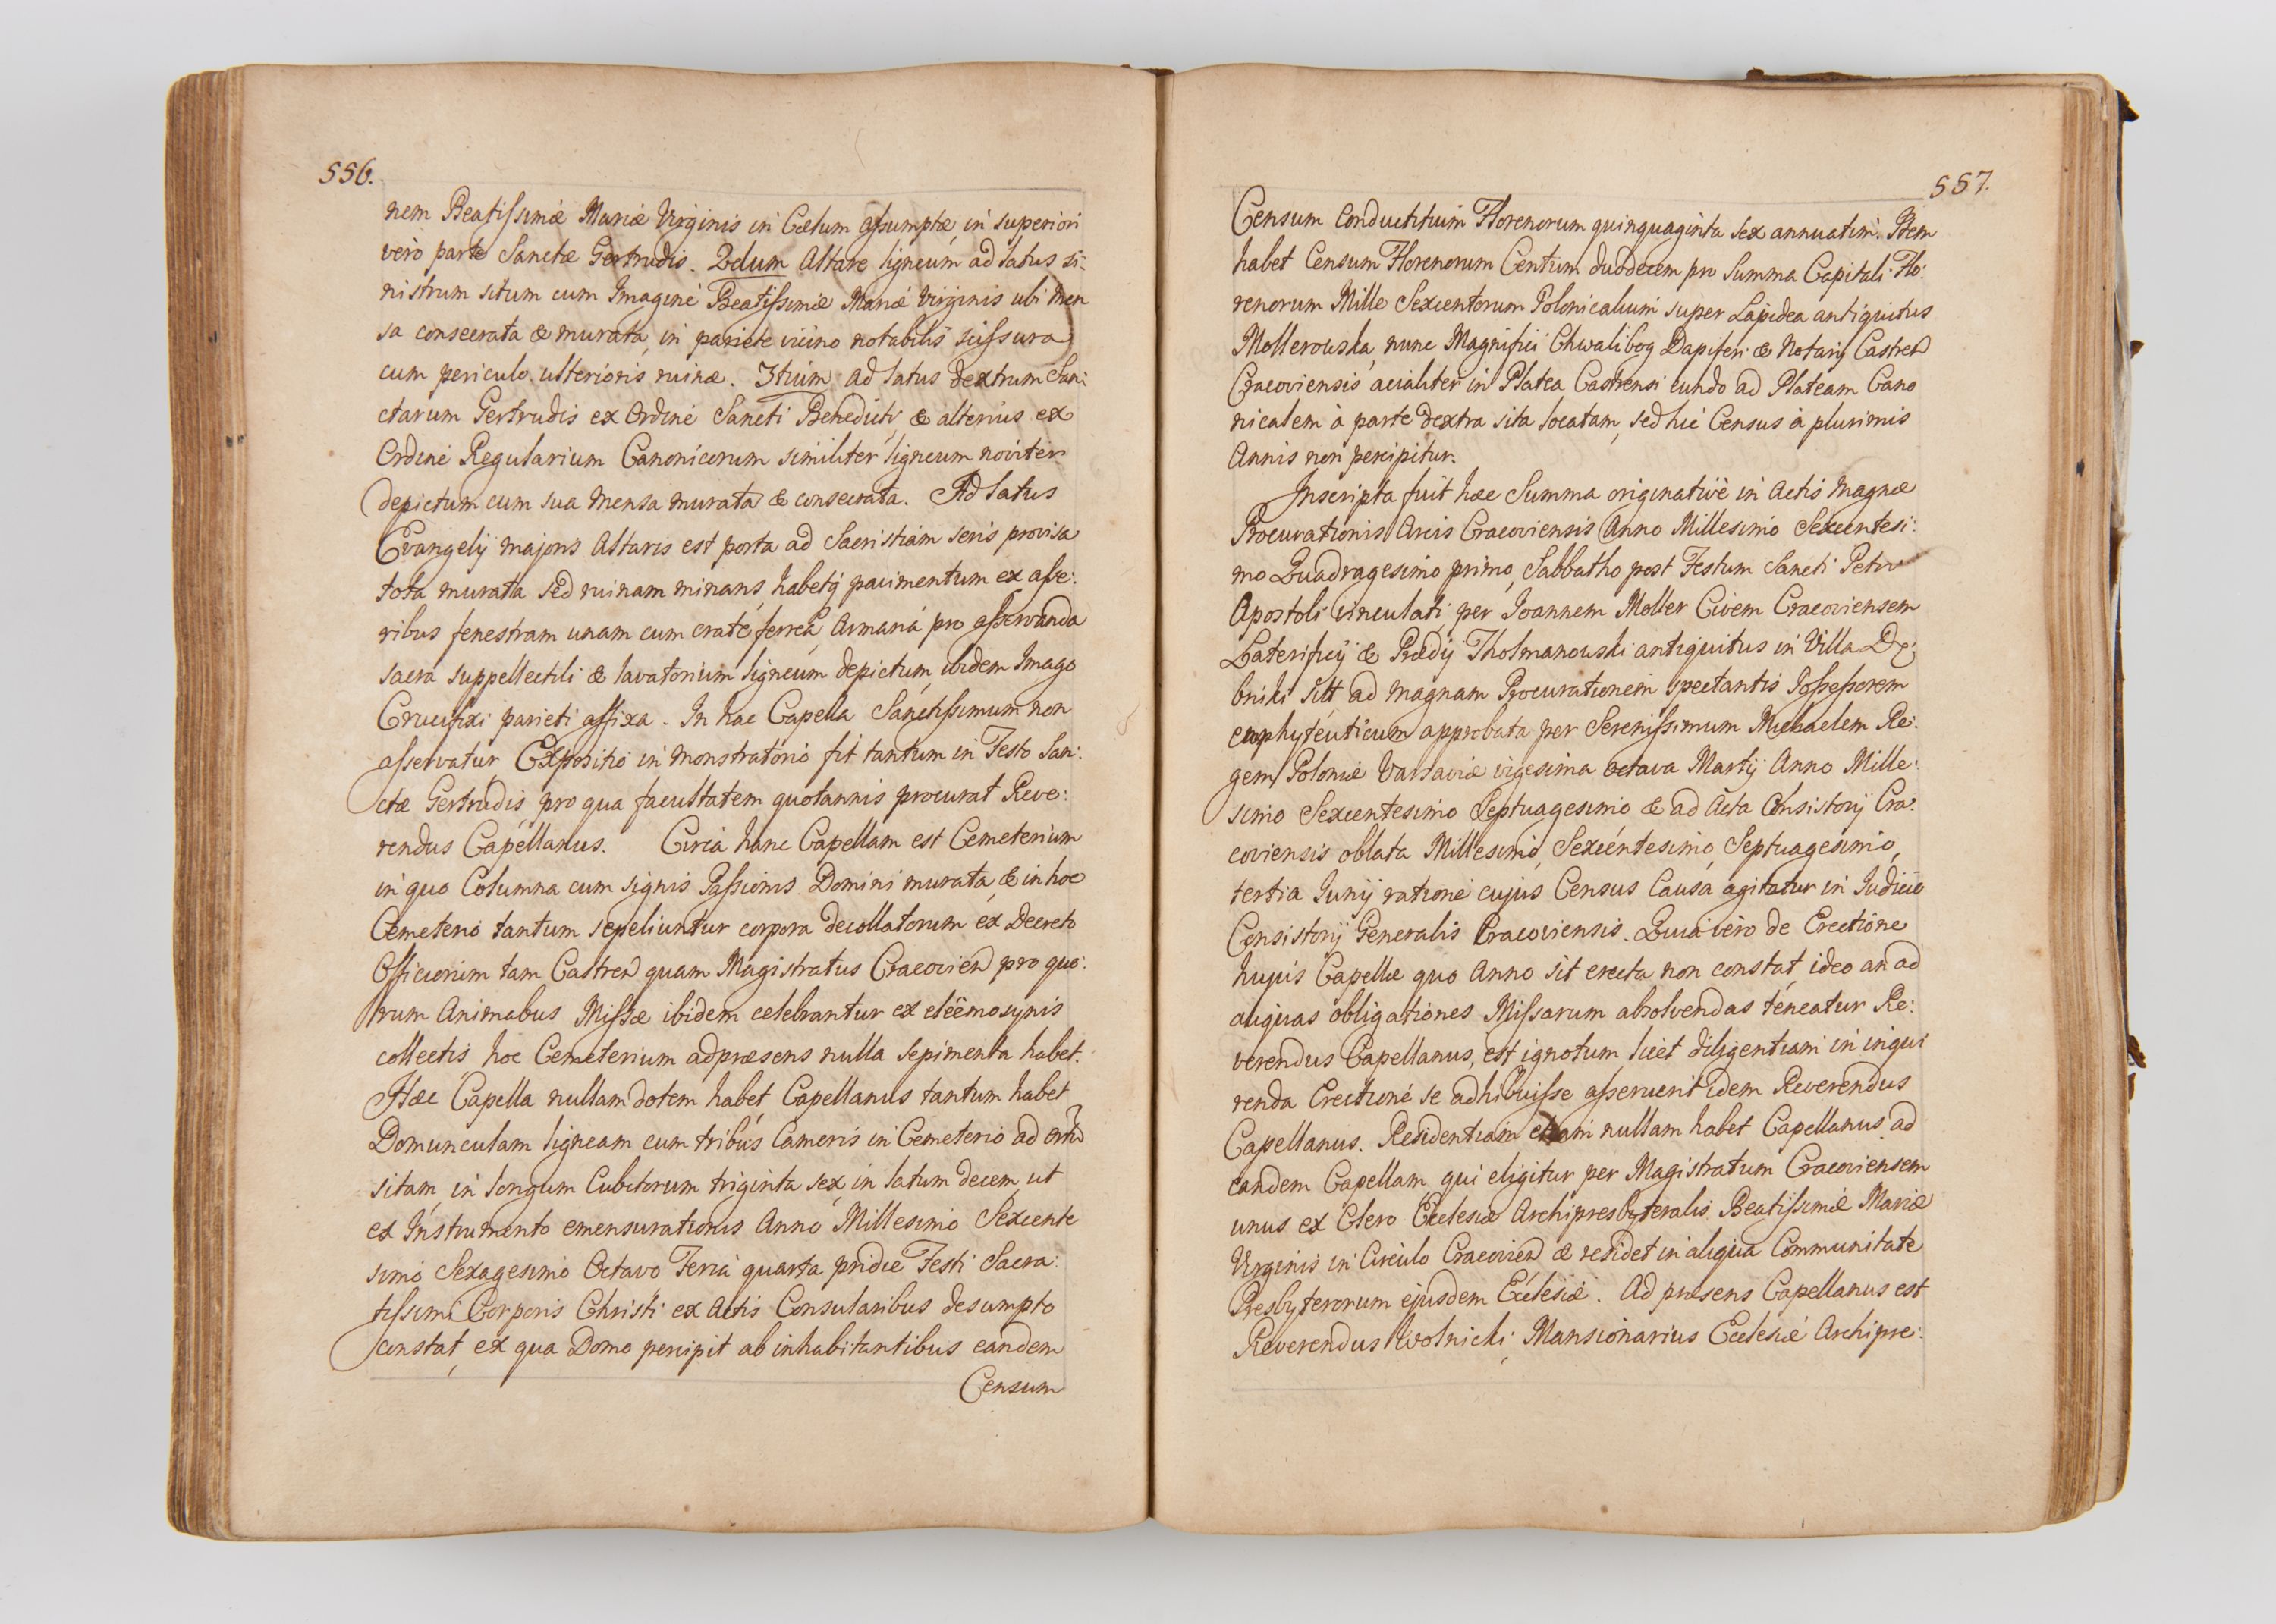 556.
nem Beatissimæ Mariæ Virginis in Cœlum assumptæ, in superiori
verò parte Sanctæ Gertrudis. 2dum Altare ligneum ad latus si:
nistrum situm cum Imagine Beatissimæ Mariæ Virginis ubi men
sa consecrata & murata, in pariete vicino notabilis scissura
cum periculo ulterioris ruinæ. 3tium ad latus dextrum San:
ctarum Gertrudis ex Ordine Sancti Benedicti, & alterius ex
Ordine Regularium Canonicorum similiter ligneum noviter
depictum cum sua mensa murata & consecrata. Ad latus
Evangelij majoris Altaris est porta ad Sacristiam seris provisa
tota murata sed ruinam minans, habetq; pavimentum ex asse:
ribus fenestram unam cum crate ferrea, Armaria pro asservanda
sacra suppellectili & lavatorium ligneum depictum, ibidem Imago
Crucifixi parieti affixa. In hac Capella Sanctissimum non
asservatur Expositio in monstratorio fit tantum in Festo San:
ctæ Gertrudis, pro qua facultatem quotannis procurat Reve:
rendus Capellanus. Circa hanc Capellam est Cemeterium
in quo Columna cum signis Passionis Domini murata, & in hoc
Cemeterio tantum sepeliuntur corpora decollatorum ex Decreto
Officiorum tam Castren quam Magistratus Cracovien pro quo:
rum Animabus Missæ ibidem celebrantur ex eleëmosynis
collectis, hoc Cemeterium ad præsens nulla sepimenta habet.
Hæc Capella nullam dotem habet Capellanus tantum habet
Domunculam ligneam cum tribus Cameris in Cemeterio ad
sitam, in longum Cubitorum triginta sex, in latum decem, ut
ex Instrumento emensurationis Anno Millesimo Sexcente
simo Sexagesimo Octavo Feria quarta pridie Festi Sacra:
tissimi Corporis Christi ex Actis Consularibus desumpto
constat, ex qua Domo percipit ab inhabitantibus eandem
Censum
557.
Censum conductitium Florenorum quinquaginta sex annuatim. Item
habet Censum Florenorum Centum duodecem pro Summa Capitali Flo:
renorum Mille Sexcentorum Polonicalium super Lapidea antiquitus
Mollerowska, nunc Magnifici Chwalibog Dapiferi & Notarij Castren
Cracoviensis acialiter in Platea Castrensi eundo ad Plateam Cano
nicalem à parte dextra sita locatam, sed hic Census à plurimis
Annis non percipitur.
Inscripta fuit hæc Summa originativè in Actis Magnæ
Procurationis Arcis Cracoviensis Anno Millesimo Sexcentesi:
mo Quadragesimo primo, Sabbatho post Festum Sancti Petri
Apostoli vinculati, per Joannem Moller Civem Cracoviensem
Laterificij & Prædij Tholmanowski antiquitus in Villa Dę:
bniki siti, ad magnam Procurationem spectantis Possessorem
emphyteuticum approbata per Serenissimum Michaelem Re:
gem Poloniæ Varsaviæ vigesima octava Martij Anno Mille:
simo Sexcentesimo Septuagesimo & ad Acta Consistorij Cra:
coviensis oblata Millesimo, Sexcentesimo, Septuagesimo,
tertia Junij ratione cujus Census Causa agitatur in Judicio
Consistorij Generalis Cracoviensis. Quia vero de Erectione
hujus Capellæ quo Anno sit erecta non constat, ideo an ad
aliquas obligationes Missarum absolvendas teneatur Re:
verendus Capellanus, est ignotum licet diligentiam in inqui
renda Erectione se adhibuisse asseruerit idem Reverendus
Capellanus. Residentiam etiam nullam habet Capellanus ad
eandem Capellam, qui eligitur per Magistratum Cracoviensem
unus ex Clero Ecclesiæ Archipresbyteralis Beatissimæ Mariæ
Virginis in Circulo Cracovien & residet in aliqua Communitate
Presbyterorum ejusdem Ecclesiæ. Ad præsens Capellanus est
Reverendus Wolnicki, Mansionarius Ecclesiæ Archipre: